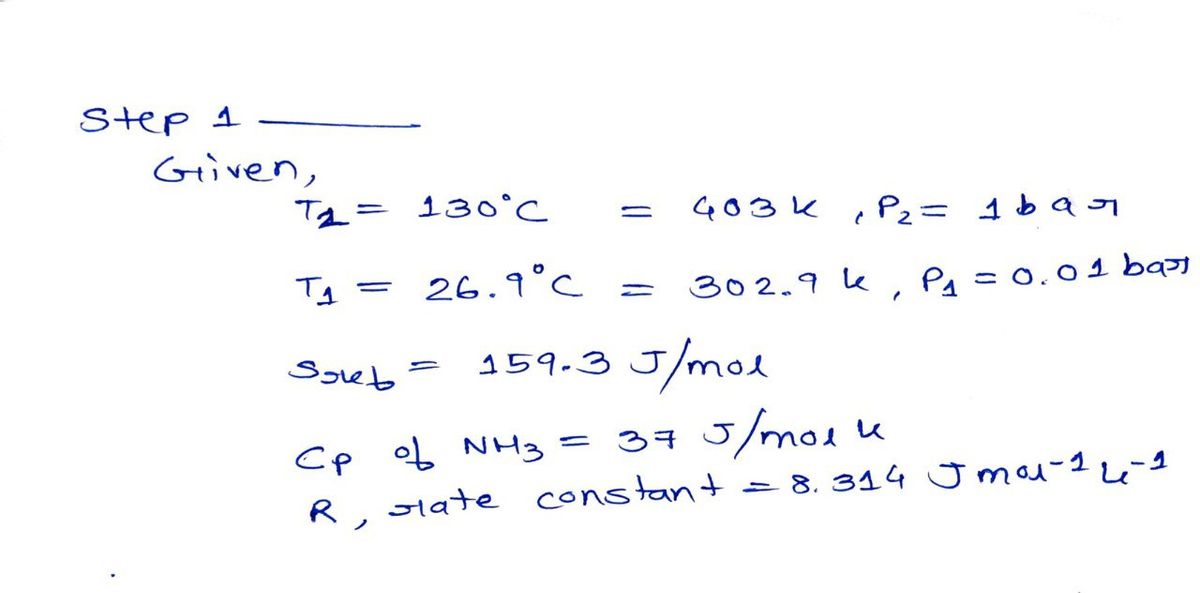 Step 1
Given,
T2 = 130°C = 403 K , P2 = 1 bar
T1 = 26.9°C = 302.9 K , P1 = 0.01 bar
Sref = 159.3 J/mol
Cp of NH3 = 37 J/mol K
R, rate constant = 8.314 J mol-1 K-1